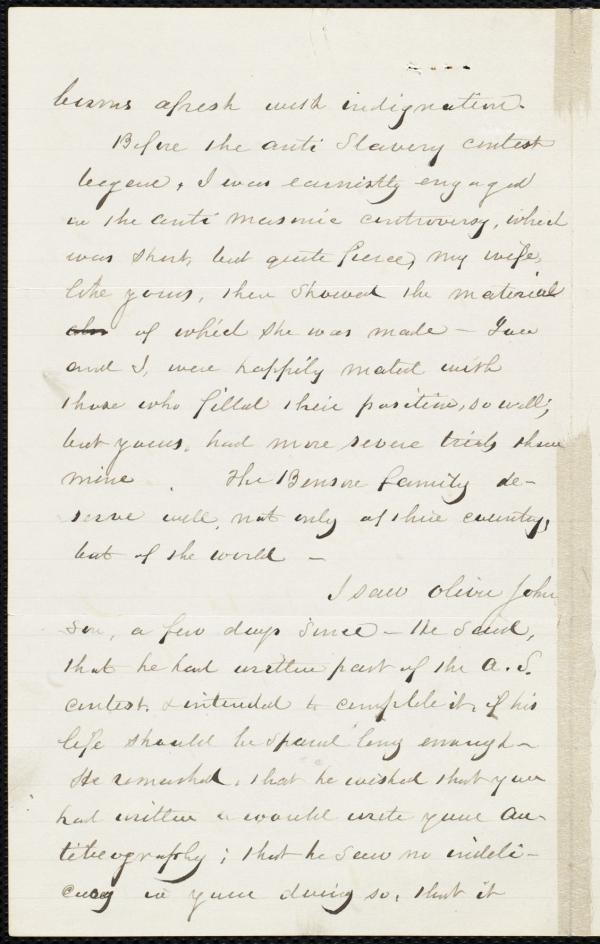 burns afresh with indignation.
Before the anti Slavery contest
began, I was earnestly engaged
in the anti masonic controversy, which
was short, but quite fierce, my wife,
like yours, then showed the material
of which she was made — You
and I, were happily mated with
those who filled their position, so well,
but yours, had more severe trials than
mine. The Benson family de-
serve well, not only of their country,
but of the world —
I saw Oliver John
son, a few days since — He said,
that he had written part of the A. S.
contest, & intended to complete it, if his
life should be spared long enough —
He remarked, that he wished that you
had written or would write your au-
tibiography; that he saw no indeli-
cacy in your doing so, that it